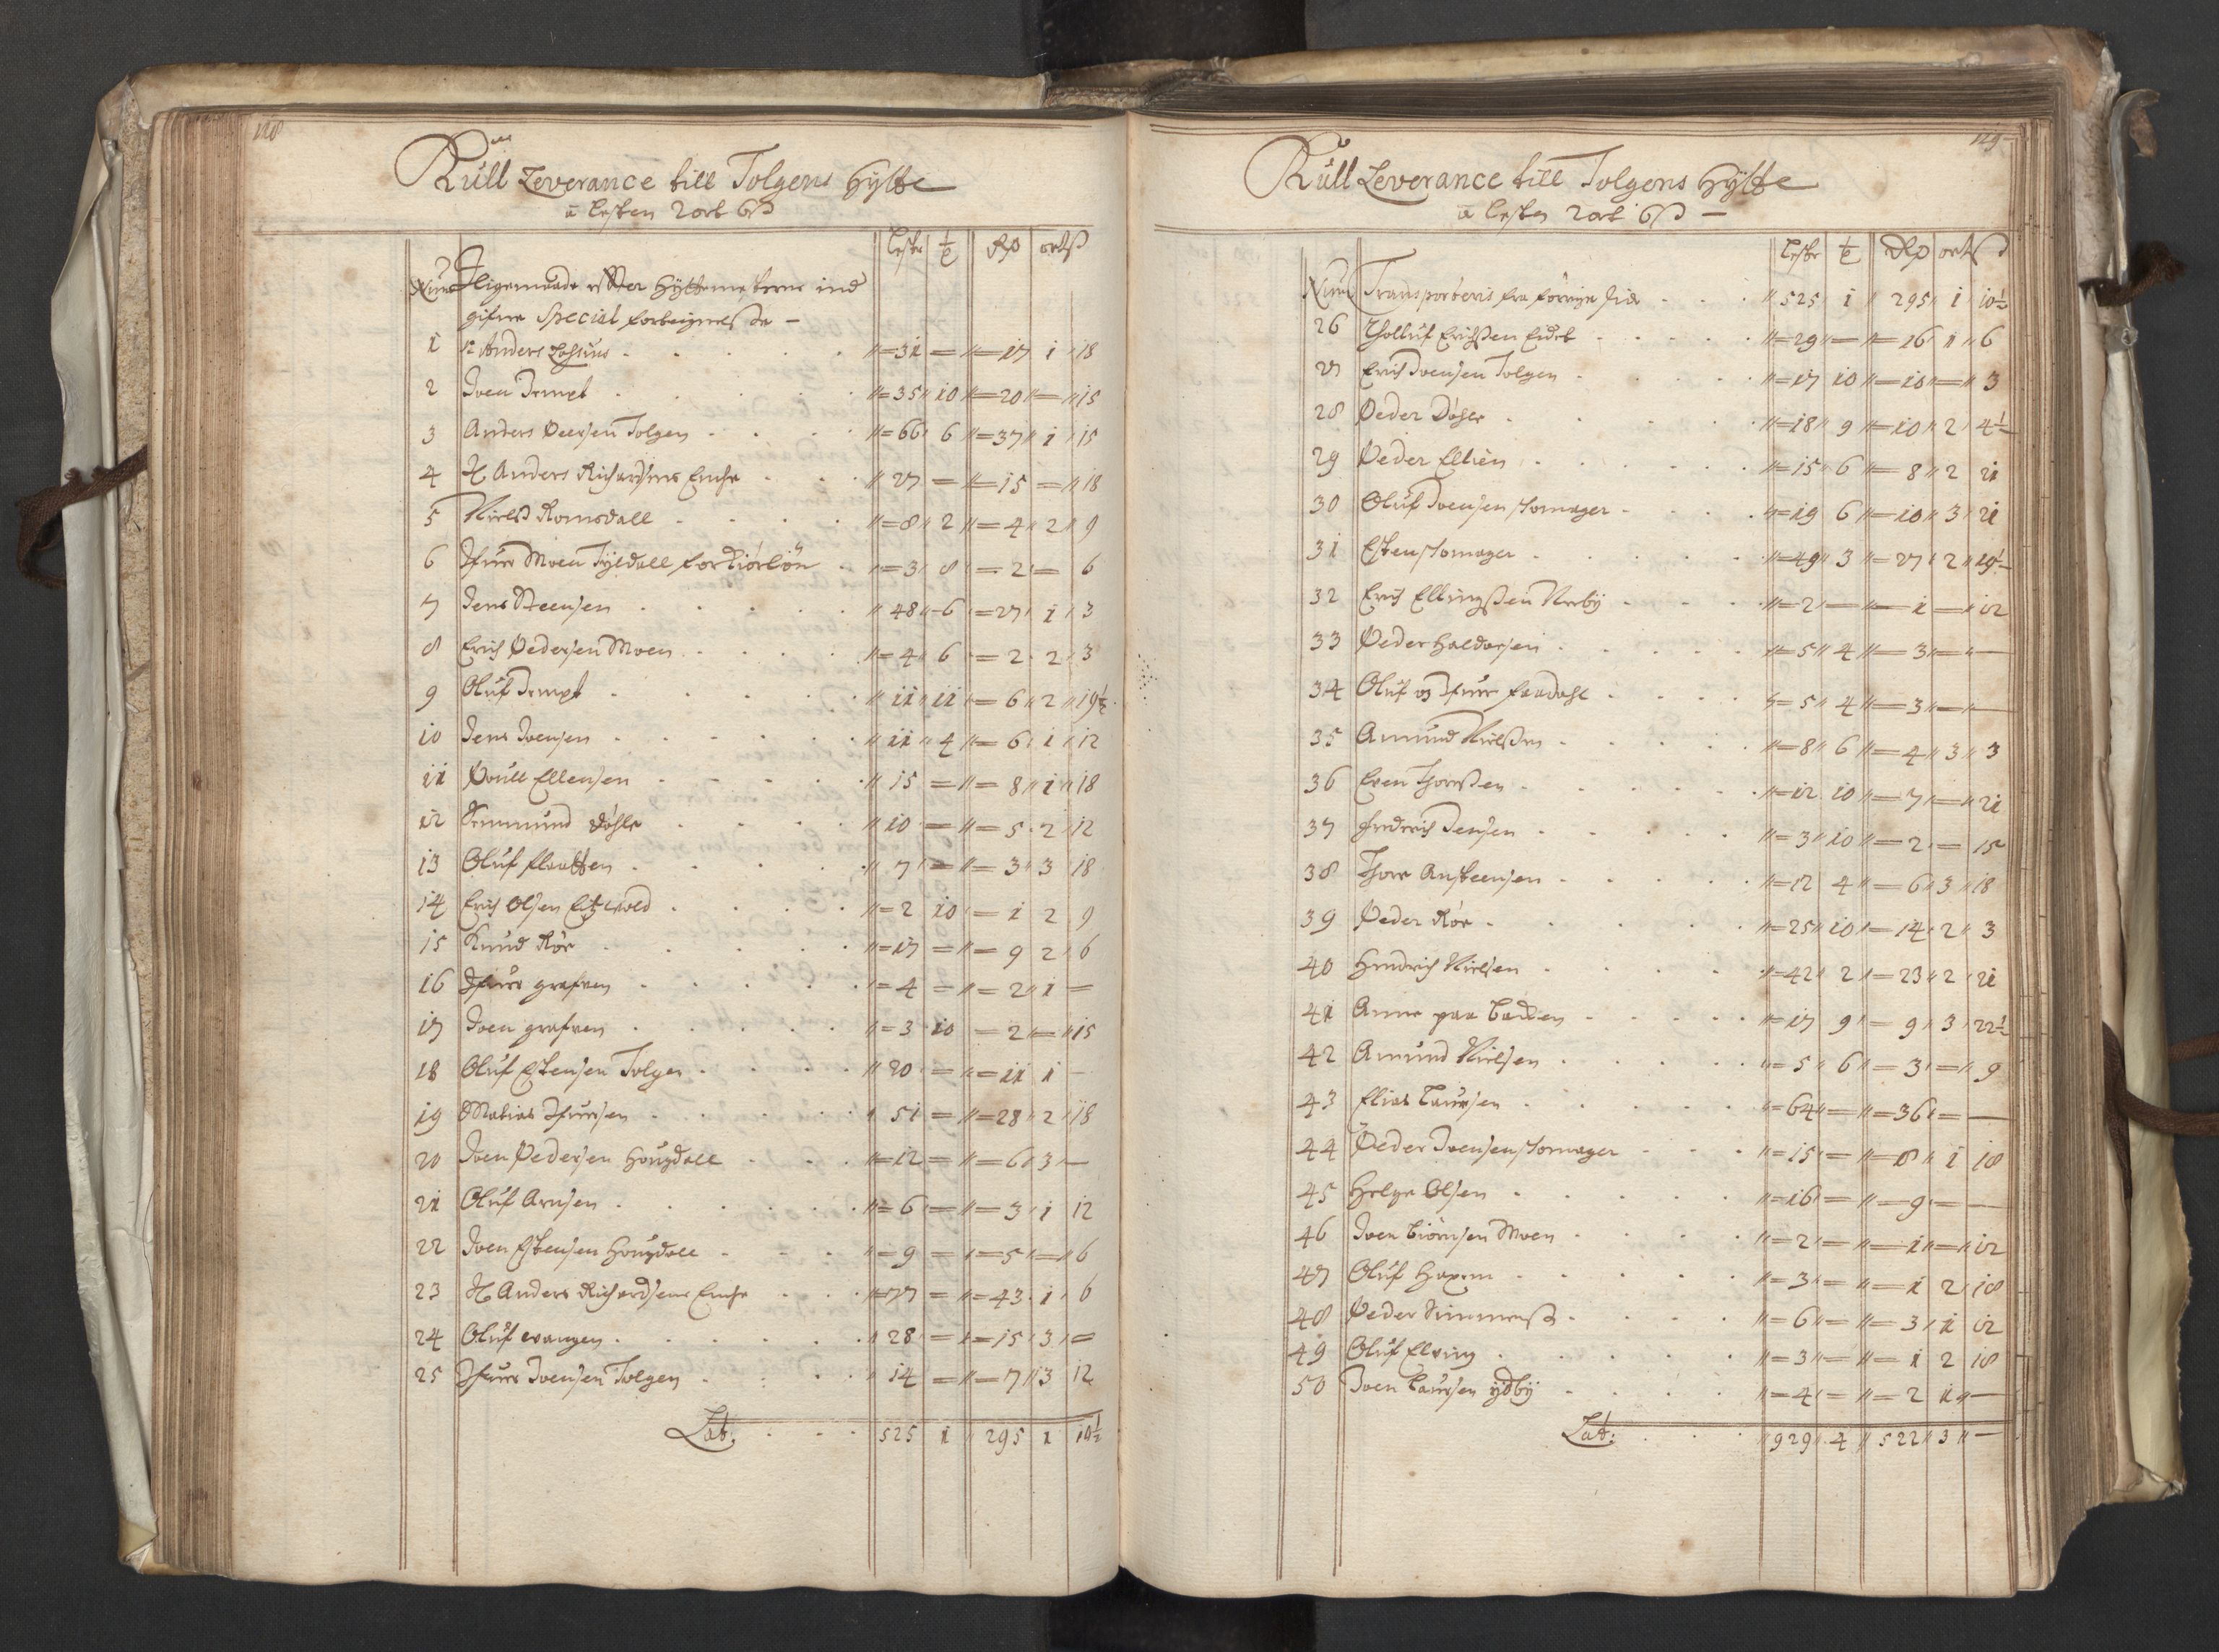 128
Kull Leverance till Tolgens Hytte
a lesten 2 ort 6 ß
Num Ligemaade efter Hyttemesterens ind lester t Rdr ort ß
gifne Special fortegnelße
1 Sr Anders " = 31 = " = 17 1 " 18
2 Joen Jempt " = 35 " 10 " = 20 " = " 15
3 Anders Peersen Tolgen " = 66 " 6 " = 37 " 1 " 15
4 H Anders Richardsens Encke " 27 = " = 15 = " 18
5 Nielß Romsdall " = 8 " 2 " = 4 " 2 " 9
6 Ifuer Moen Tyldall for " = 3 " 8 " = 2 " = 6
7 Jens Steensen " 48 " = 6 " = 27 " 1 " 3
8 Erich Pedersen Moen " = 4 " 6 " = 2 " 2 " 3
9 Oluf Jempt " 11 " 11 " = 6 " 2 " 19½
10 Jens Joensen " 11 " 4 " = 6 " 1 " 12
11 Poull Ellensen " 15 = " = 8 " 1 " 18
12 Semmund Døhle " 10 = " = 5 " 2 " 12
13 Oluf Flaatten " 7 " = " = 3 " 3 18
14 Erich Olsen Eitzwold " = 2 10 " = 1 2 9
15 Knud Røe " = 17 = " = 9 2 " 6
16 Ifuer grafven " = 4 = " = 2 " 1 =
17 Joen grafven " = 3 10 = 2 " = " 15
18 Oluf Estensen Tolgen " 20 = " = 11 1 —
19 Matias Ifuersen " 51 = " = 28 " 2 " 18
20 Joen Pedersen Hougdall " = 12 = " = 6 " 3 " —
21 Oluf Arnsen " = 6 " = " = 3 " 1 12
22 Joen Estensen Hougdall " = 9 = " = 5 " = " 6
23 H Anders Richardsens Encke " = 77 = " = 43 " 1 " 6
24 Oluf wangen " 28 = " = 15 " 3 " =
25 Ifuer Joensen Tolgen " 14 = " = 7 " 3 12
Lat: 525 1 " 295 1 10½
129
Kull Leverance till Tolgens Hytte
a lesten 2 ort 6 ß —
Num Transporteris fra forrige side lester t Rdr ort ß
" 525 " 1 " 295 " 1 10½
26 Tholluf Erichßen Eidet " = 29 " = " = 16 " 1 " 6
27 Erich Joensen Tolgen " = 17 10 " = 10 " = " 3
28 Peder Døhle " = 18 " 9 " = 10 " 2 " 4½
29 Peder Ellien " = 15 " 6 " = 8 " 2 21
30 Oluf Joensen Hornager " = 19 6 " = 10 " 3 " 21
31 Esten Hornager " = 49 " 3 " = 27 " 2 " 19½
32 Erich Ellingßen Nerby " = 2 " = " = 1 = " 12
33 Peder Haldorsen " = 5 " 4 " = 3 " = " —
34 Oluf og Ifuer faadahl " = 5 " 4 " = 3 " = " —
35 Amund Nielßen " = 8 " 6 " = 4 " 3 " 3
36 Even Thorßen " = 12 10 " = 7 " = " 21
37 Fredrich Jensen " = 3 " 10 " = 2 " = 15
38 Thore Anstensen " = 12 4 " = 6 " 3 " 18
39 Peder Røe " = 25 " 10 " = 14 " 2 " 3
40 Hendrich Nielsen " = 42 " 2 " = 23 " 2 " 21
41 Anne paa Backen " = 17 9 " = 9 " 3 " 22½
42 Amund Nielsen " = 5 " 6 " = 3 " = " 9
43 Elias Laursen " = 64 " = " = 36 " = —
44 Peder Joensen Hornager " = 15 " = " = 8 " 1 18
45 Helge Olsen " = 16 " = " = 9 " = —
46 Joen Biörnsen Moen " = 2 " = " = 1 " = " 12
47 Oluf Hoxem " = 3 " = " = 1 2 " 18
48 Peder " = 6 " = " = 3 " 1 12
49 Oluf Elving " = 3 " = " = 1 2 18
50 Joen Laursen ydby " = 4 " = " = 2 1 " —
Lat: " 929 " 4 " 522 " 3 " —